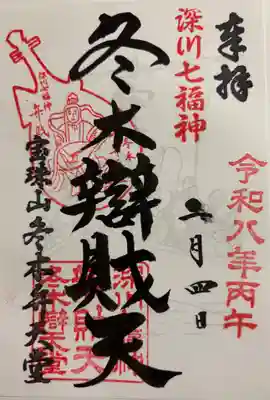 奉拝
深川七福神
令和八年丙午
二月四日
冬木辯財天
宝珠山冬木弁天堂
深川七福神
冬木辯天堂